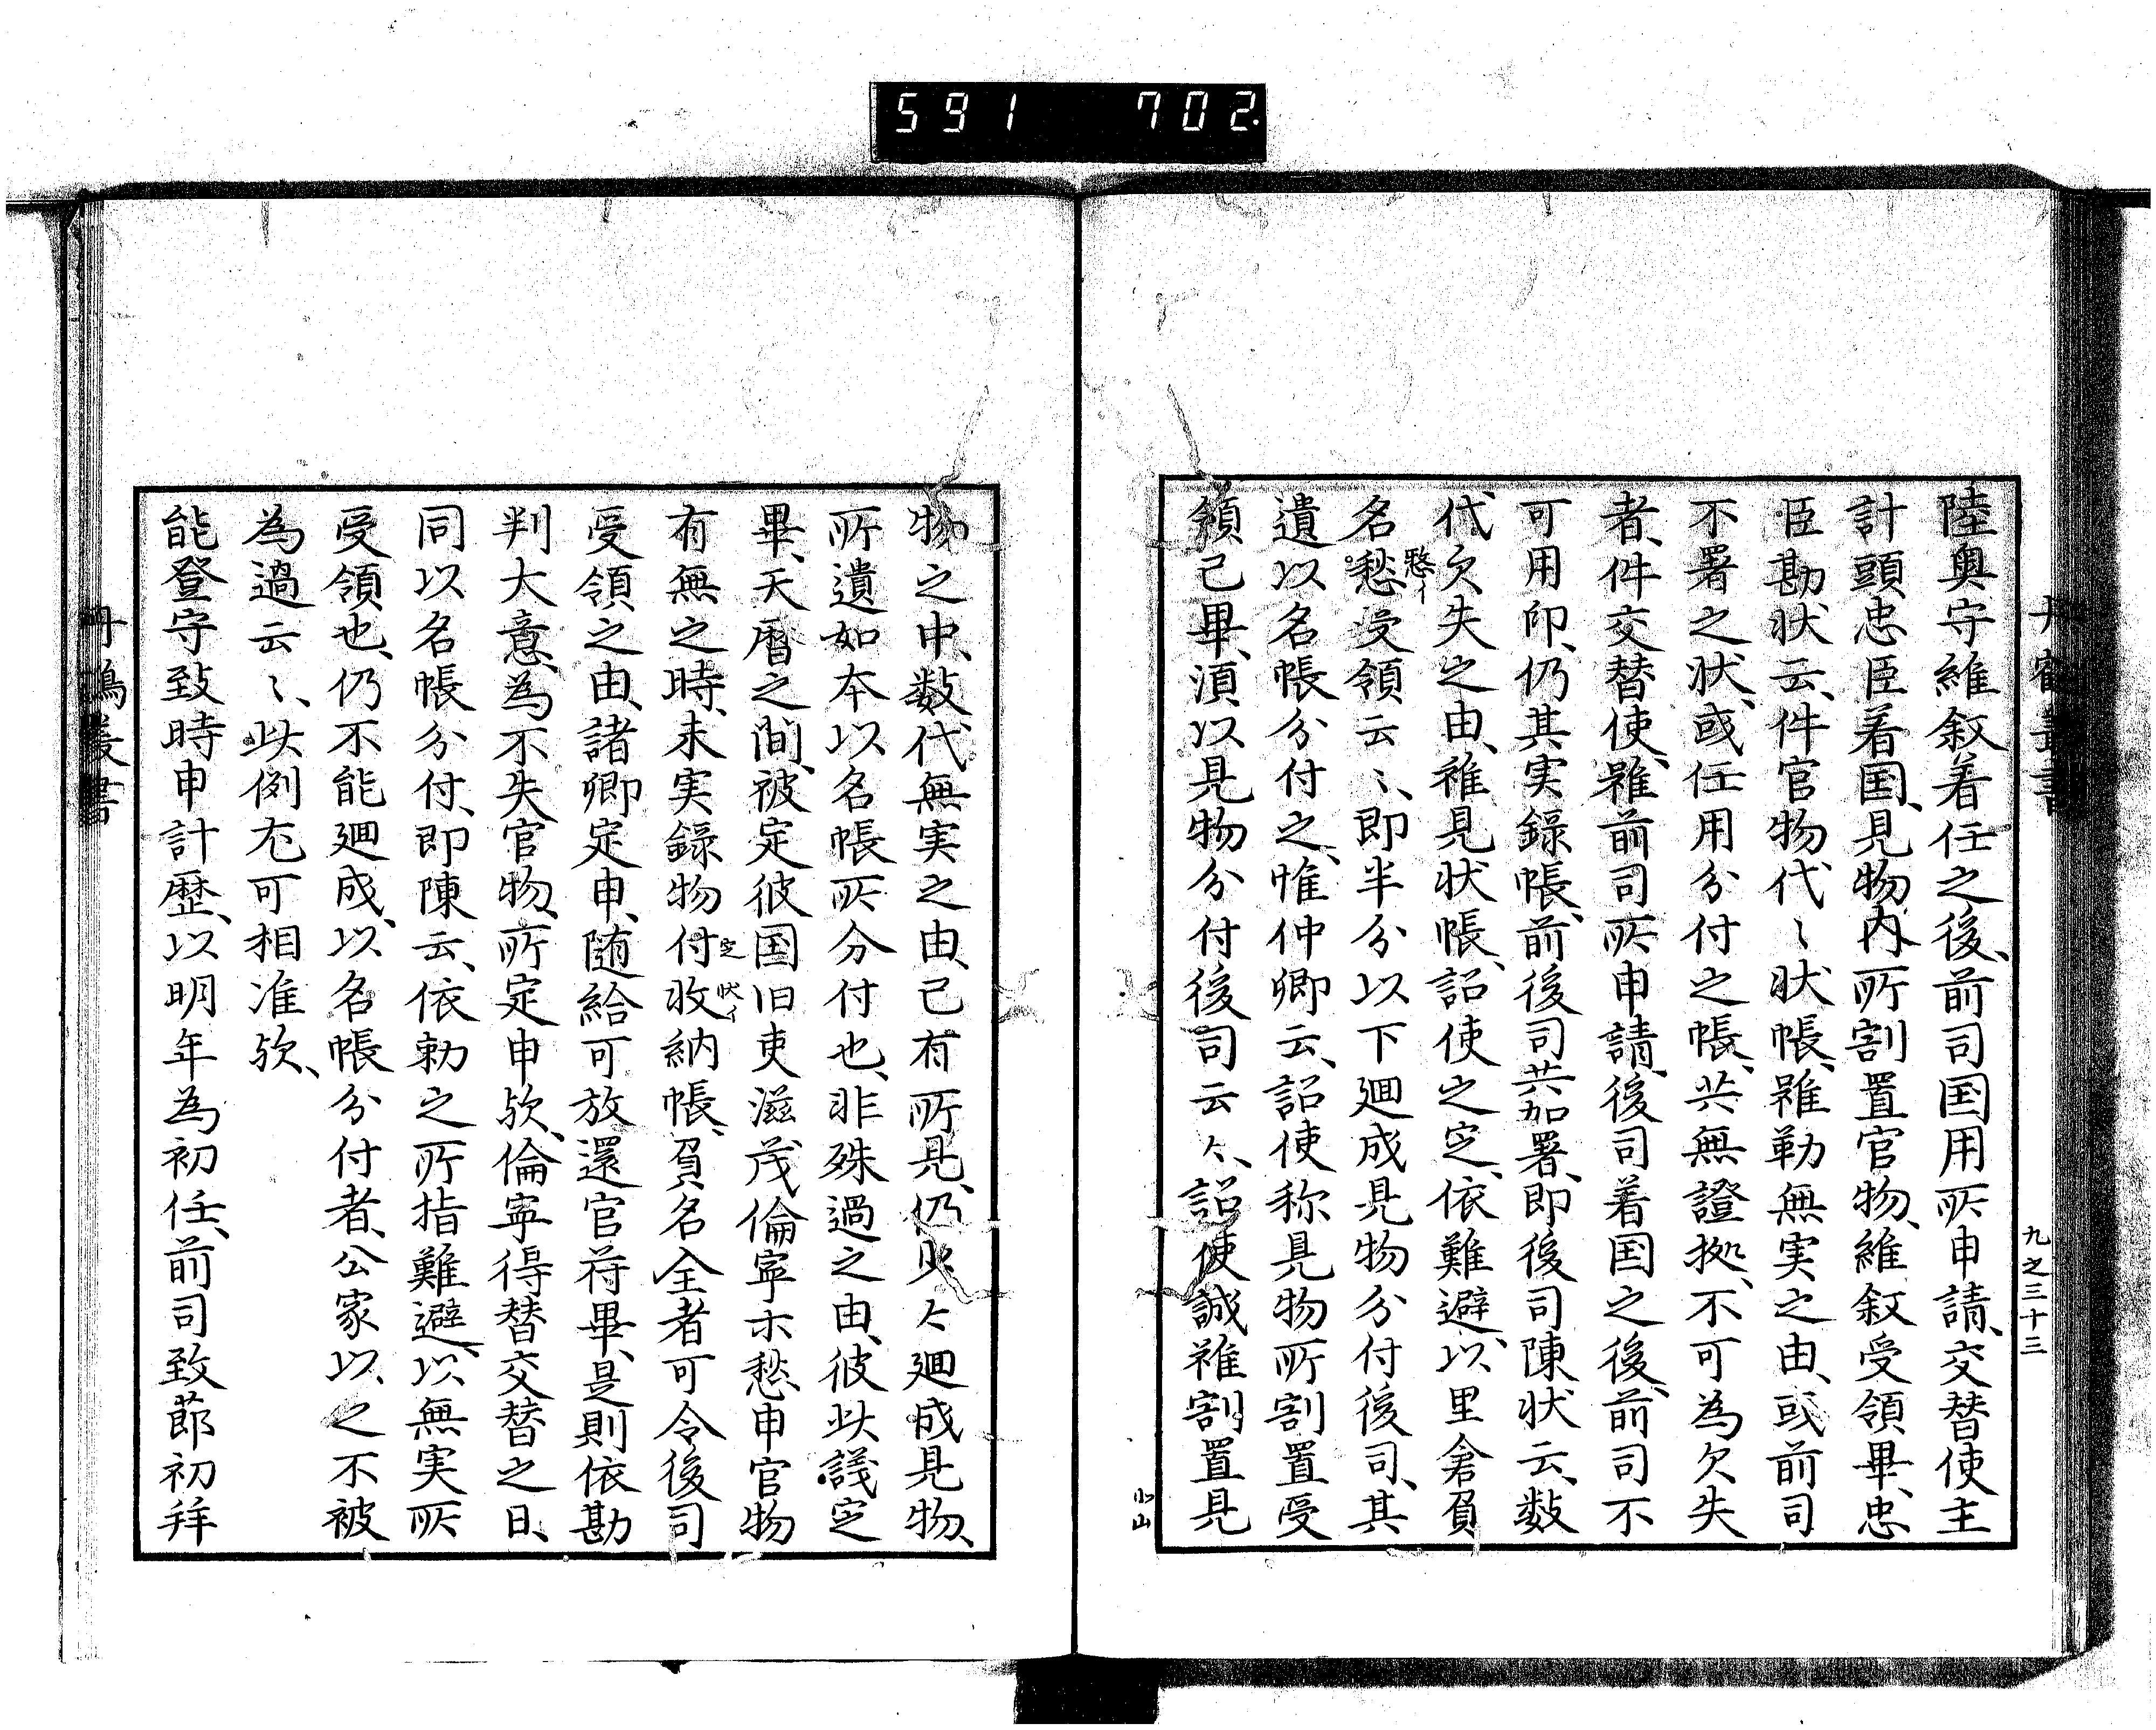 591 702
丹鶴叢書
九之三十三
陸奥守維叙着任之後、前司国用所申請、交替使主
計頭忠臣着国、見物内所割置官物、維叙受領畢、忠
臣勘状云、件官物代〻状帳、雖勒無実之由、或前司
不署之状、或任用分付之帳、共無證拠、不可為欠失
者、件交替使、雖前司所申請、後司着国之後、前司不
可用印、仍其実録帳、前後司共加署、即後司陳状云、数
代欠失之由、雖見状帳、詔使之定、依難避、以里倉負
名愁受領云〻、即半分以下廻成見物分付後司、其
愗イ
遺以名帳分付之、惟仲卿云、詔使称見物所割置受
領已畢、須以見物分付後司云々、詔使誠雖割置見
小山
物之中、数代無実之由、已有所見、仍少々廻成見物、
所遺如本以名帳所分付也、非殊過之由、彼此議定
畢、天暦之間、被定彼国旧吏滋茂倫寧木愁申官物
有無之時、未実録物付収納帳、負名全者可令後司
定 状イ
受領之由、諸卿定申、随給可放還官符畢、是則依勘
判大意、為不失官物、所定申欤、倫寧得替交替之日、
同以名帳分付、即陳云、依勅之所指難避、以無実所
受領也、仍不能廻成、以名帳分付者、公家以之不被
為過云〻、此例尤可相准欤、
能登守致時申計歴、以明年為初任、前司致莭初拜
丹鶴叢書